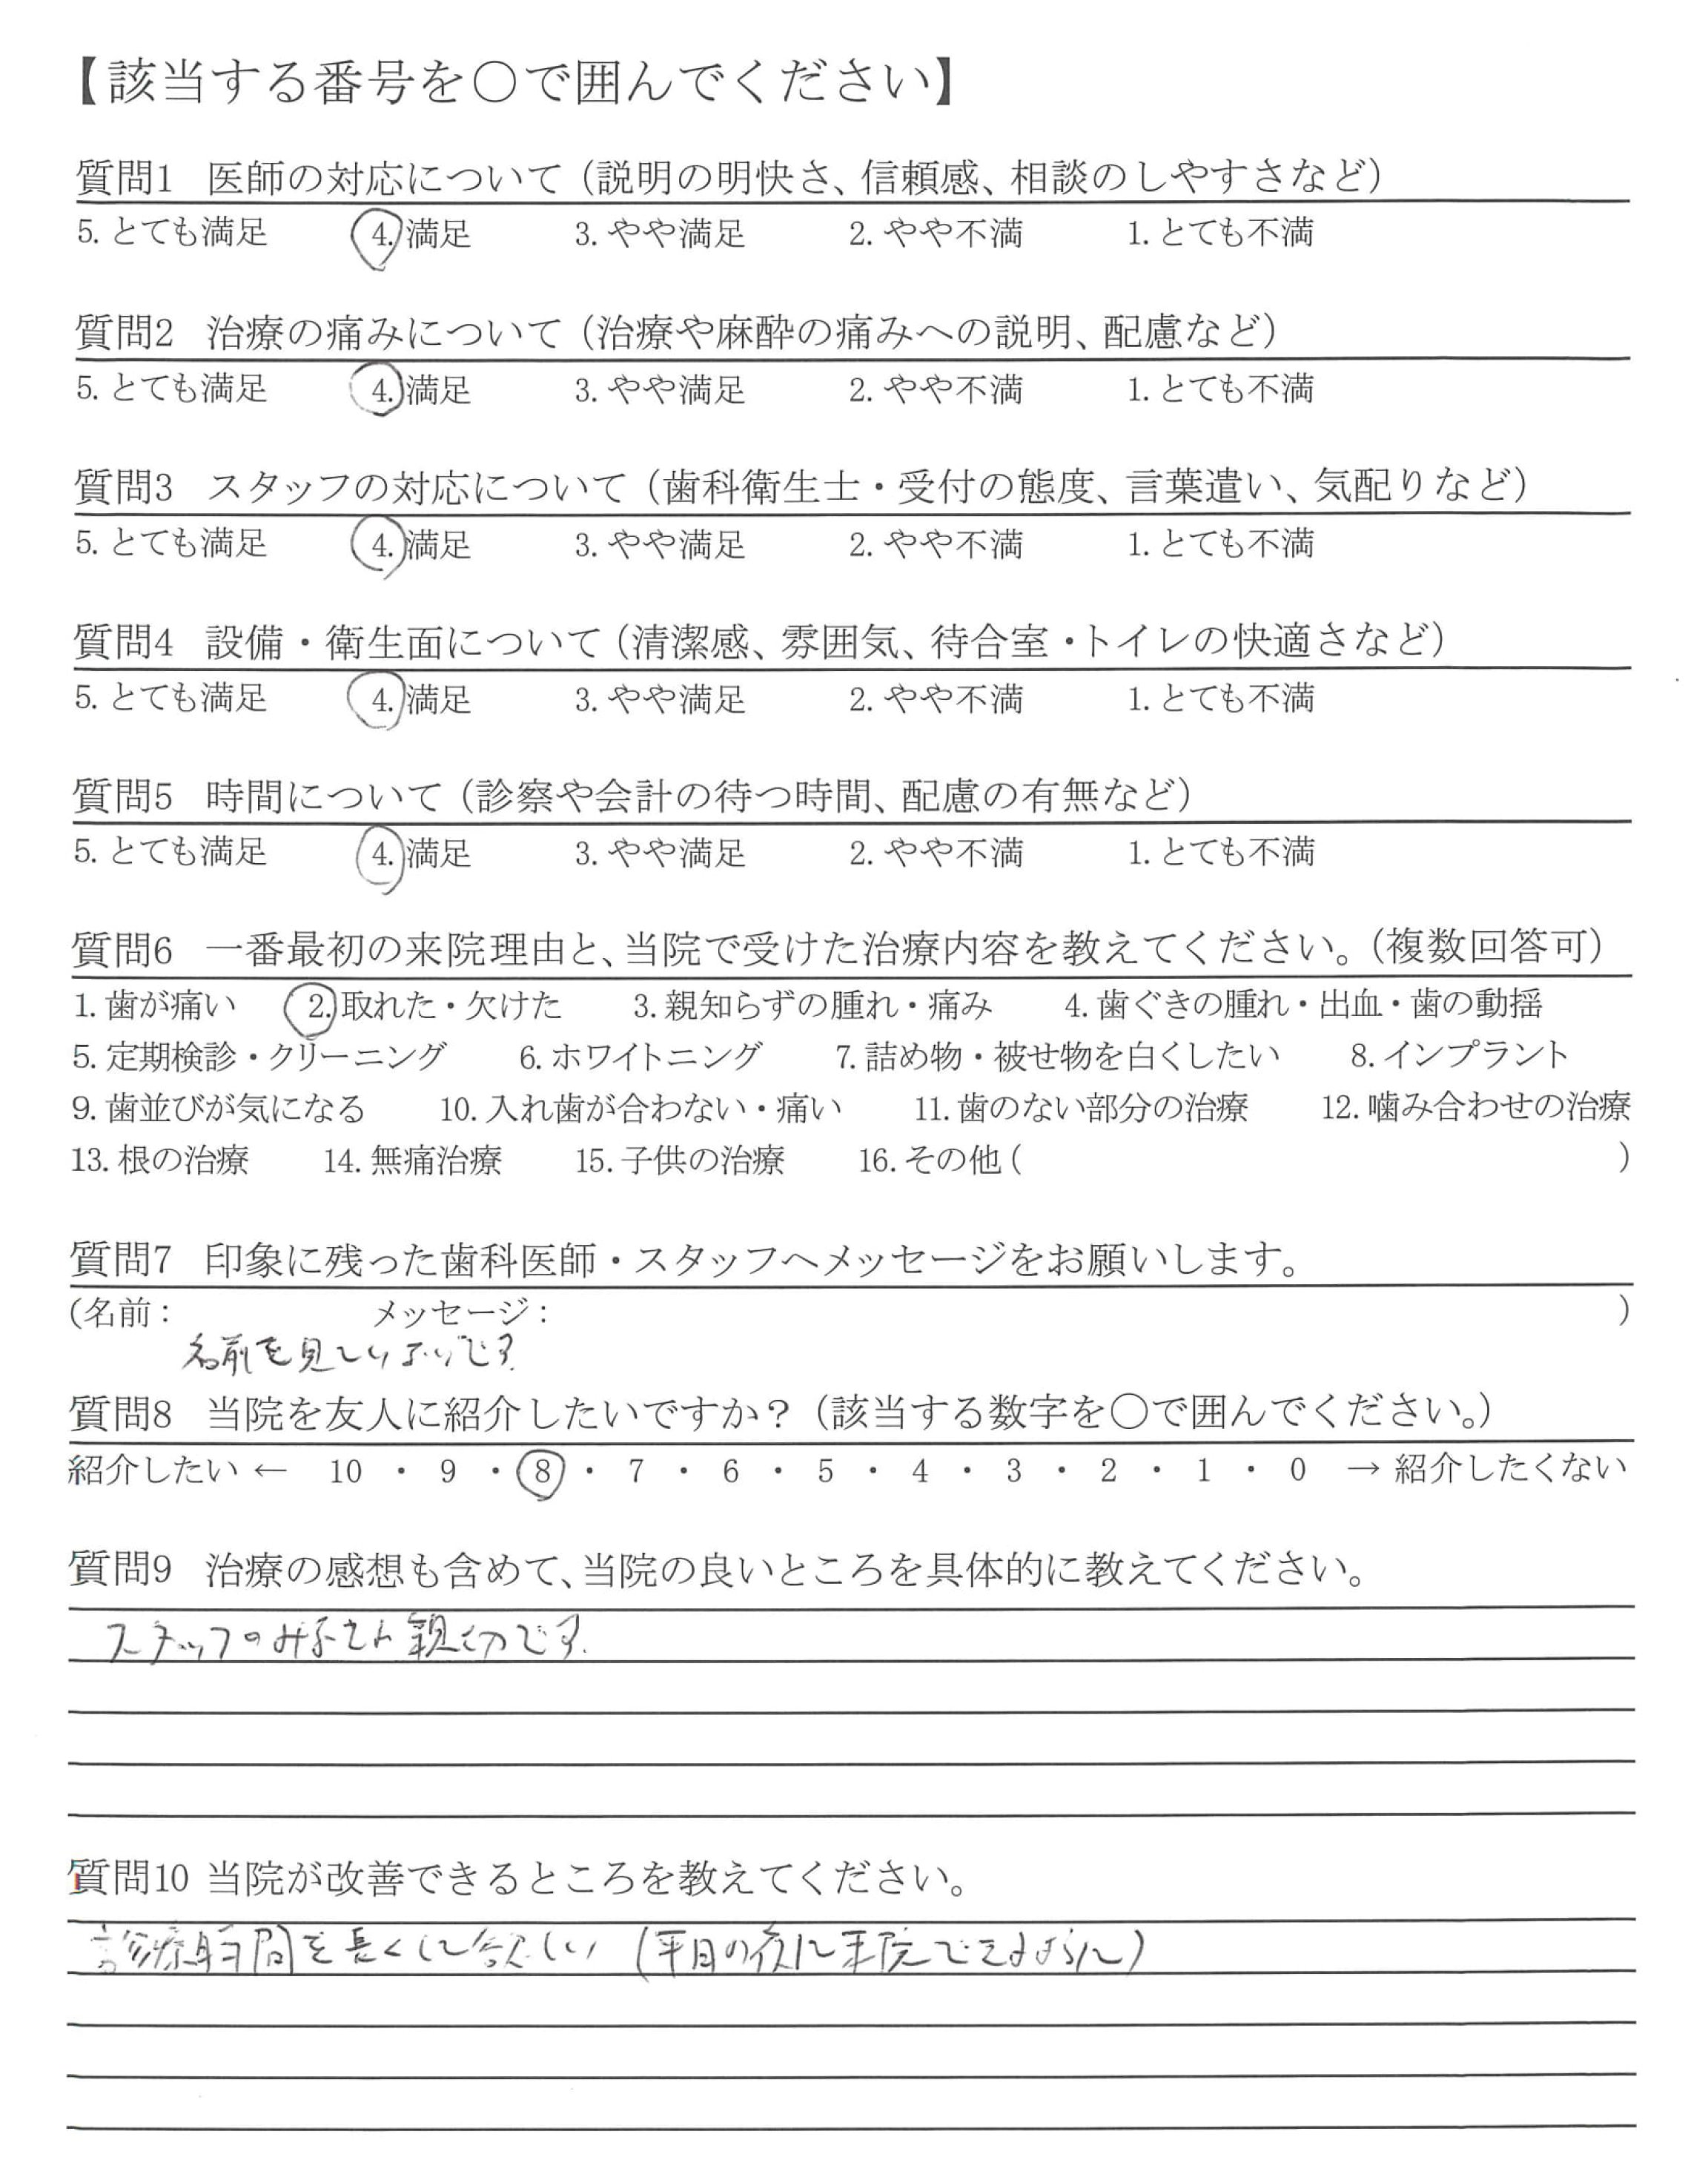 【該当する番号を○で囲んでください】
質問1 医師の対応について（説明の明快さ、信頼感、相談のしやすさなど）
5. とても満足 4. 満足 3. やや満足 2. やや不満 1. とても不満
質問2 治療の痛みについて（治療や麻酔の痛みへの説明、配慮など）
5. とても満足 4. 満足 3. やや満足 2. やや不満 1. とても不満
質問3 スタッフの対応について（歯科衛生士・受付の態度、言葉遣い、気配りなど）
5. とても満足 4. 満足 3. やや満足 2. やや不満 1. とても不満
質問4 設備・衛生面について（清潔感、雰囲気、待合室・トイレの快適さなど）
5. とても満足 4. 満足 3. やや満足 2. やや不満 1. とても不満
質問5 時間について（診察や会計の待つ時間、配慮の有無など）
5. とても満足 4. 満足 3. やや満足 2. やや不満 1. とても不満
質問6 一番最初の来院理由と、当院で受けた治療内容を教えてください。（複数回答可）
1. 歯が痛い 2. 取れた・欠けた 3. 親知らずの腫れ・痛み 4. 歯ぐきの腫れ・出血・歯の動揺
5. 定期検診・クリーニング 6. ホワイトニング 7. 詰め物・被せ物を白くしたい 8. インプラント
9. 歯並びが気になる 10. 入れ歯が合わない・痛い 11. 歯のない部分の治療 12. 噛み合わせの治療
13. 根の治療 14. 無痛治療 15. 子供の治療 16. その他（ ）
質問7 印象に残った歯科医師・スタッフへメッセージをお願いします。
（名前： メッセージ： ）
名前を見していないです
質問8 当院を友人に紹介したいですか？（該当する数字を○で囲んでください。）
紹介したい ← 10 ・ 9 ・ 8 ・ 7 ・ 6 ・ 5 ・ 4 ・ 3 ・ 2 ・ 1 ・ 0 → 紹介したくない
質問9 治療の感想も含めて、当院の良いところを具体的に教えてください。
スタッフのみなさん親切です。
質問10 当院が改善できるところを教えてください。
診療時間を長くして欲しい（平日の夜に来院できますように）